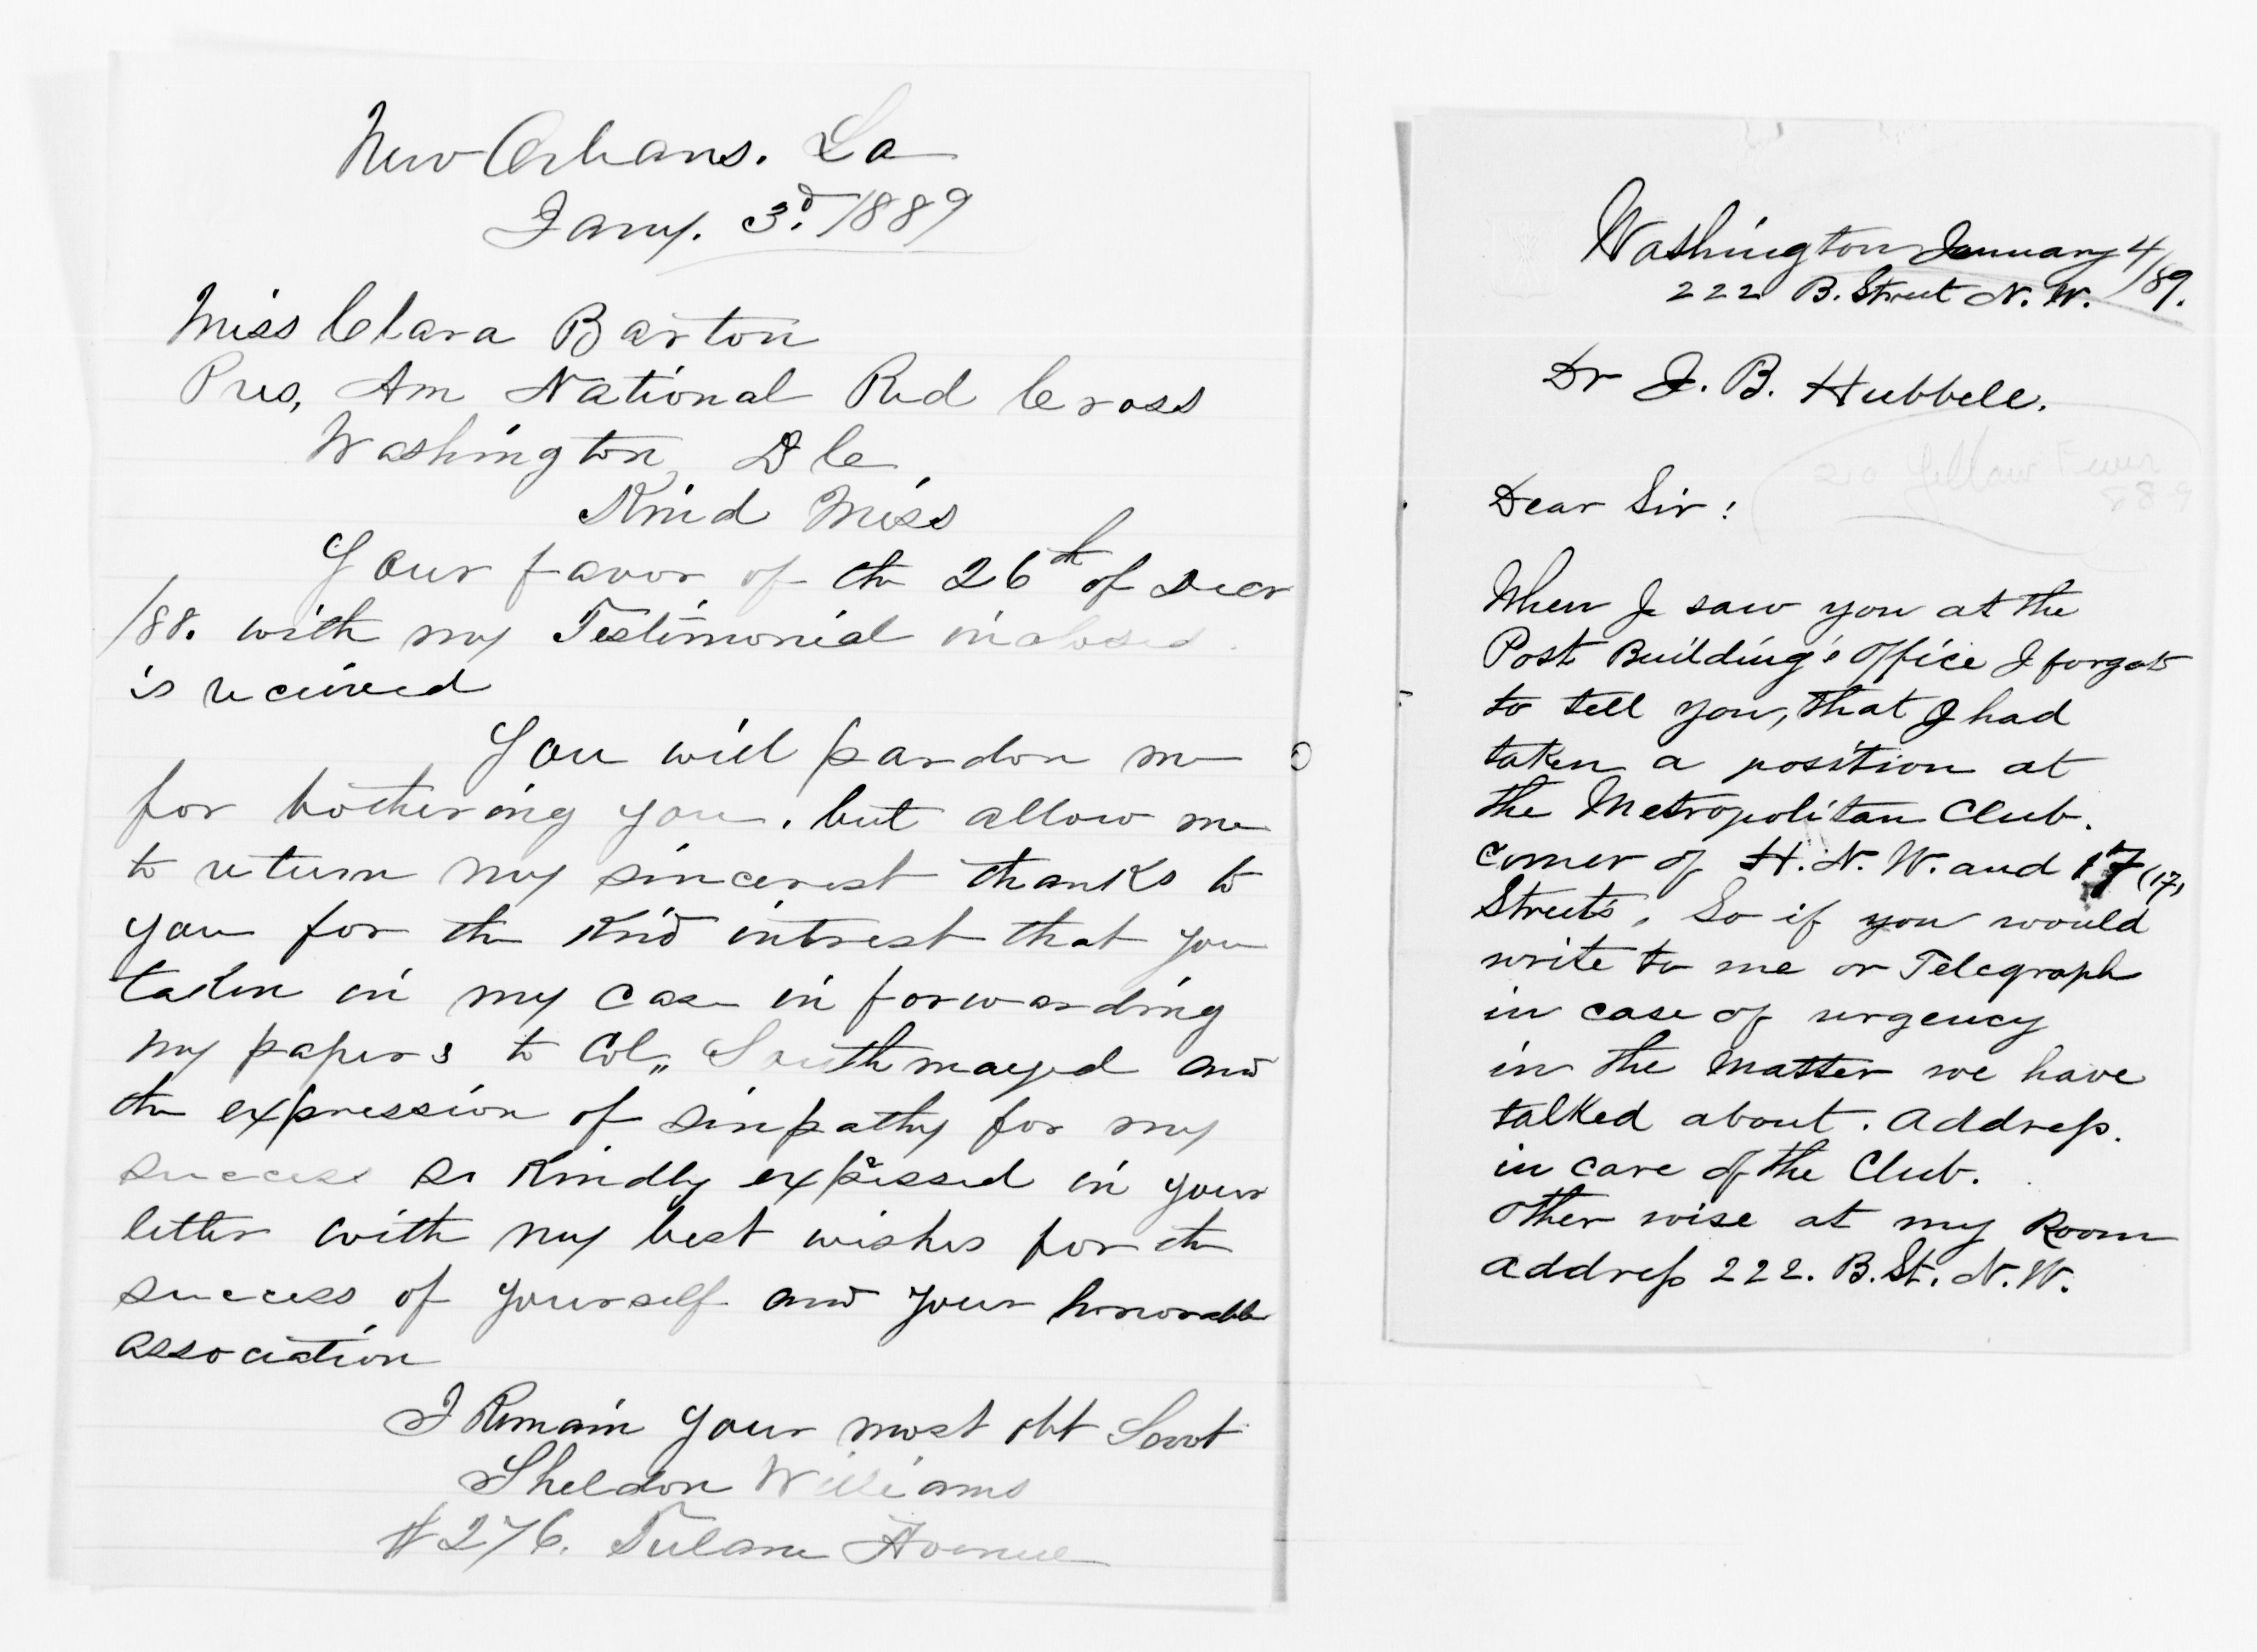 New Orleans. La
Jany. 3d. 1889
Miss Clara Barton
Pres, Am National Red Cross
Washington, D C,
Kind Miss
Your favor of the 26th of Decr
/88. with my Testimonial inclosed.
is received
You will pardon me
for bothering you. but allow me
to return my sincerest thanks to
you for the Kind intrest that you
taken in my case in forwarding
my papers to Col,, Southmayed and
the expression of simpathy for my
success so Kindly expressed in your
letter with my best wishes for the
success of yourself and your honorable
association
I Remain your most obt Servt
Sheldon Williams
# 276. Tulane Avenue
Washington January 4/89.
222 B. Street N. W.
Dr J. B. Hubbell.
Yellow Fever
Dear Sir:
When I saw you at the
Post Building's Office I forgot
to tell you, that I had
taken a position at
the Metropolitan Club.
corner of H. N. W. and 17 (17)
Streets, So if you would
write to me or Telegraph
in case of urgency
in the Matter we have
talked about. Address.
in care of the Club.
other wise at my Room
address 222. B. St. N. W.